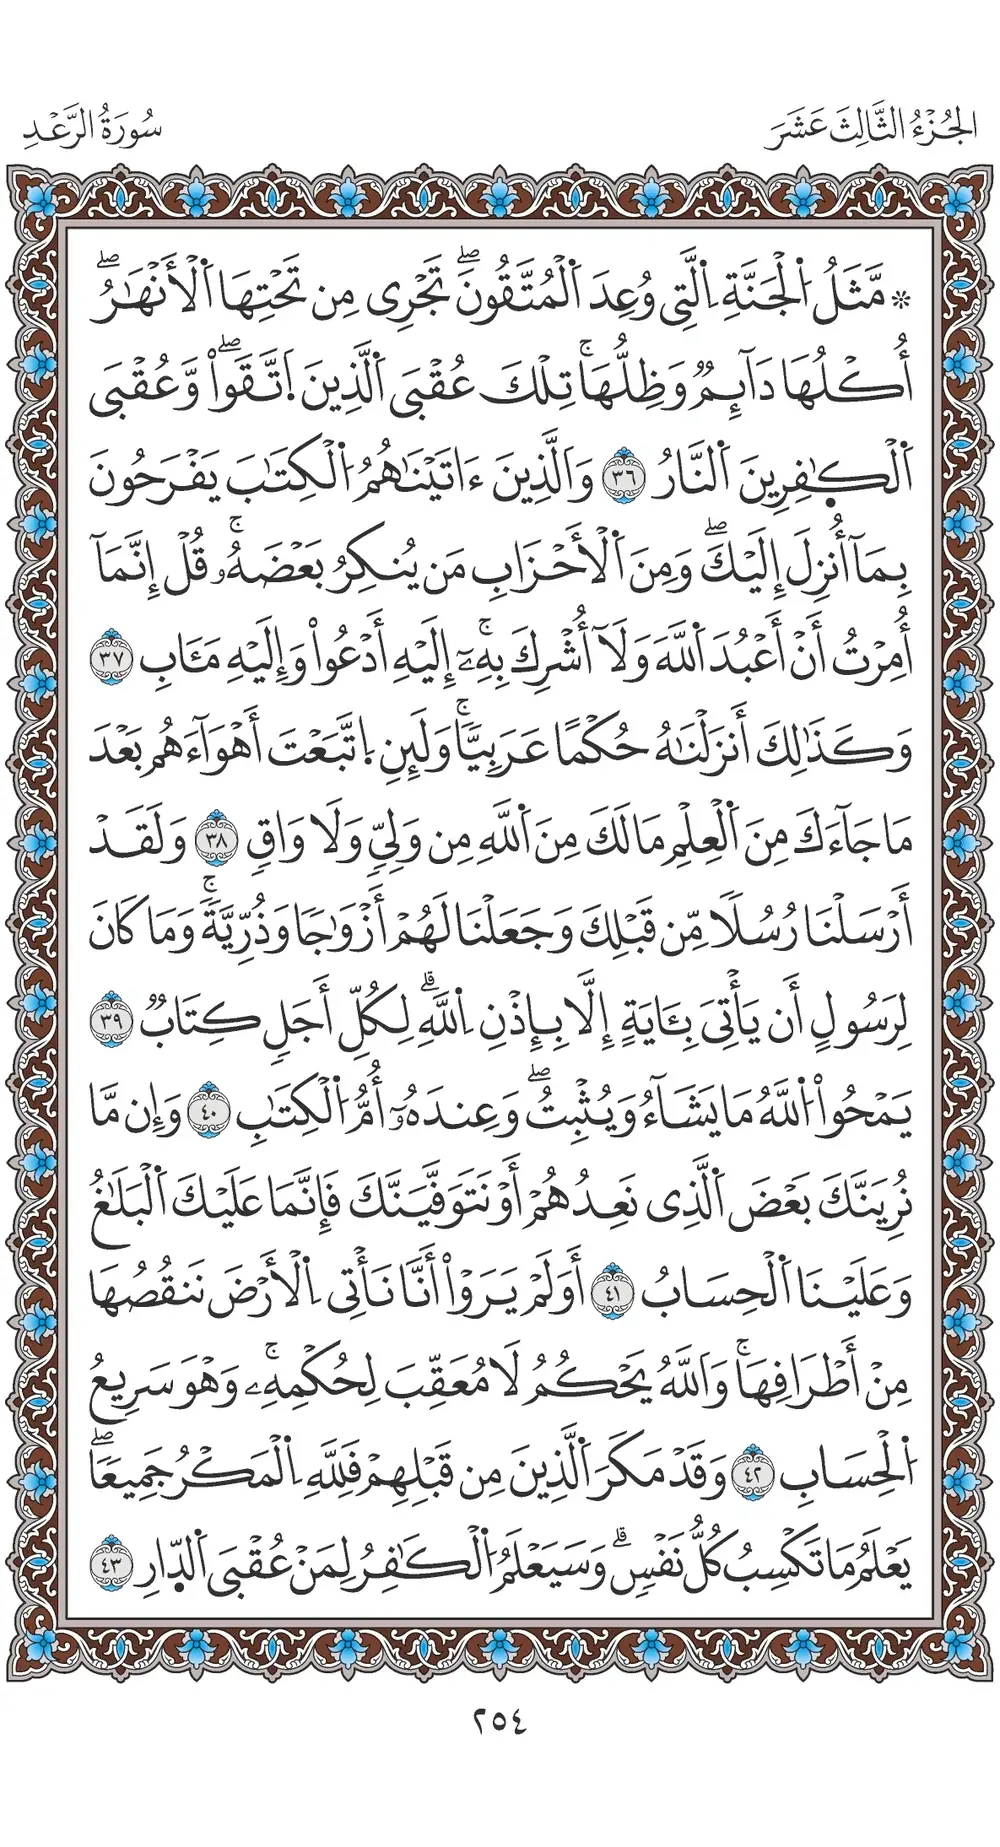 الجُزْءُ الثَّالِثَ عَشَرَ
سُورَةُ الرَّعْدِ
۞ مَّثَلُ اُ۬لْجَنَّةِ اِ۬لَّتِي وُعِدَ اَ۬لْمُتَّقُونَۖ تَجْرِي مِن تَحْتِهَا اَ۬لْأَنْهَٰرُۖ
أُكْلُهَا دَآئِمٌ وَظِلُّهَاۚ تِلْكَ عُقْبَى اَ۬لَّذِينَ اَ۪تَّقَواْۖ وَّعُقْبَى
اَ۬لْكٰ۪فِرِينَ اَ۬لنَّارُ ٣٦ وَالَّذِينَ ءَاتَيْنَٰهُمُ اُ۬لْكِتَٰبَ يَفْرَحُونَ
بِمَآ أُنزِلَ إِلَيْكَۖ وَمِنَ اَ۬لْأَحْزَابِ مَن يُنكِرُ بَعْضَهُۥۚ قُلْ إِنَّمَآ
أُمِرْتُ أَنْ أَعْبُدَ اَ۬للَّهَ وَلَآ أُشْرِكَ بِهِۦٓۚ إِلَيْهِ أَدْعُواْ وَإِلَيْهِ مَـَٔابِ ٣٧
وَكَذَٰلِكَ أَنزَلْنَٰهُ حُكْمًا عَرَبِيّٗاۚ وَلَئِنِ اِ۪تَّبَعْتَ أَهْوَآءَهُم بَعْدَ
مَا جَآءَكَ مِنَ اَ۬لْعِلْمِ مَا لَكَ مِنَ اَ۬للَّهِ مِن وَلِيّٖ وَلَا وَاقٖ ٣٨ وَلَقَدْ
أَرْسَلْنَا رُسُلٗا مِّن قَبْلِكَ وَجَعَلْنَا لَهُمْ أَزْوَٰجٗا وَذُرِّيَّةٗۚ وَمَا كَانَ
لِرَسُولٍ أَن يَأْتِيَ بِـَٔايَةٍ إِلَّا بِإِذْنِ اِ۬للَّهِۗ لِكُلِّ أَجَلٖ كِتَابٞ ٣٩
يَمْحُواْ اُ۬للَّهُ مَا يَشَآءُ وَيُثْبِتُۖ وَعِندَهُۥٓ أُمُّ اُ۬لْكِتَٰبِ ٤٠ وَإِن مَّا
نُرِيَنَّكَ بَعْضَ اَ۬لَّذِي نَعِدُهُمْ أَوْ نَتَوَفَّيَنَّكَ فَإِنَّمَا عَلَيْكَ اَ۬لْبَلَٰغُ
وَعَلَيْنَا اَ۬لْحِسَابُ ٤١ أَوَلَمْ يَرَوْاْ أَنَّا نَأْتِي اِ۬لْأَرْضَ نَنقُصُهَا
مِنْ أَطْرَافِهَاۚ وَاَللَّهُ يَحْكُمُ لَا مُعَقِّبَ لِحُكْمِهِۦۚ وَهْوَ سَرِيعُ
اُ۬لْحِسَابِ ٤٢ وَقَدْ مَكَرَ اَ۬لَّذِينَ مِن قَبْلِهِمْ فَلِلَّهِ اِ۬لْمَكْرُ جَمِيعٗاۖ
يَعْلَمُ مَا تَكْسِبُ كُلُّ نَفْسٖۗ وَسَيَعْلَمُ اُ۬لْكَٰفِرُ لِمَنْ عُقْبَى اَ۬لدّ۪ارِ ٤٣
٢٥٤